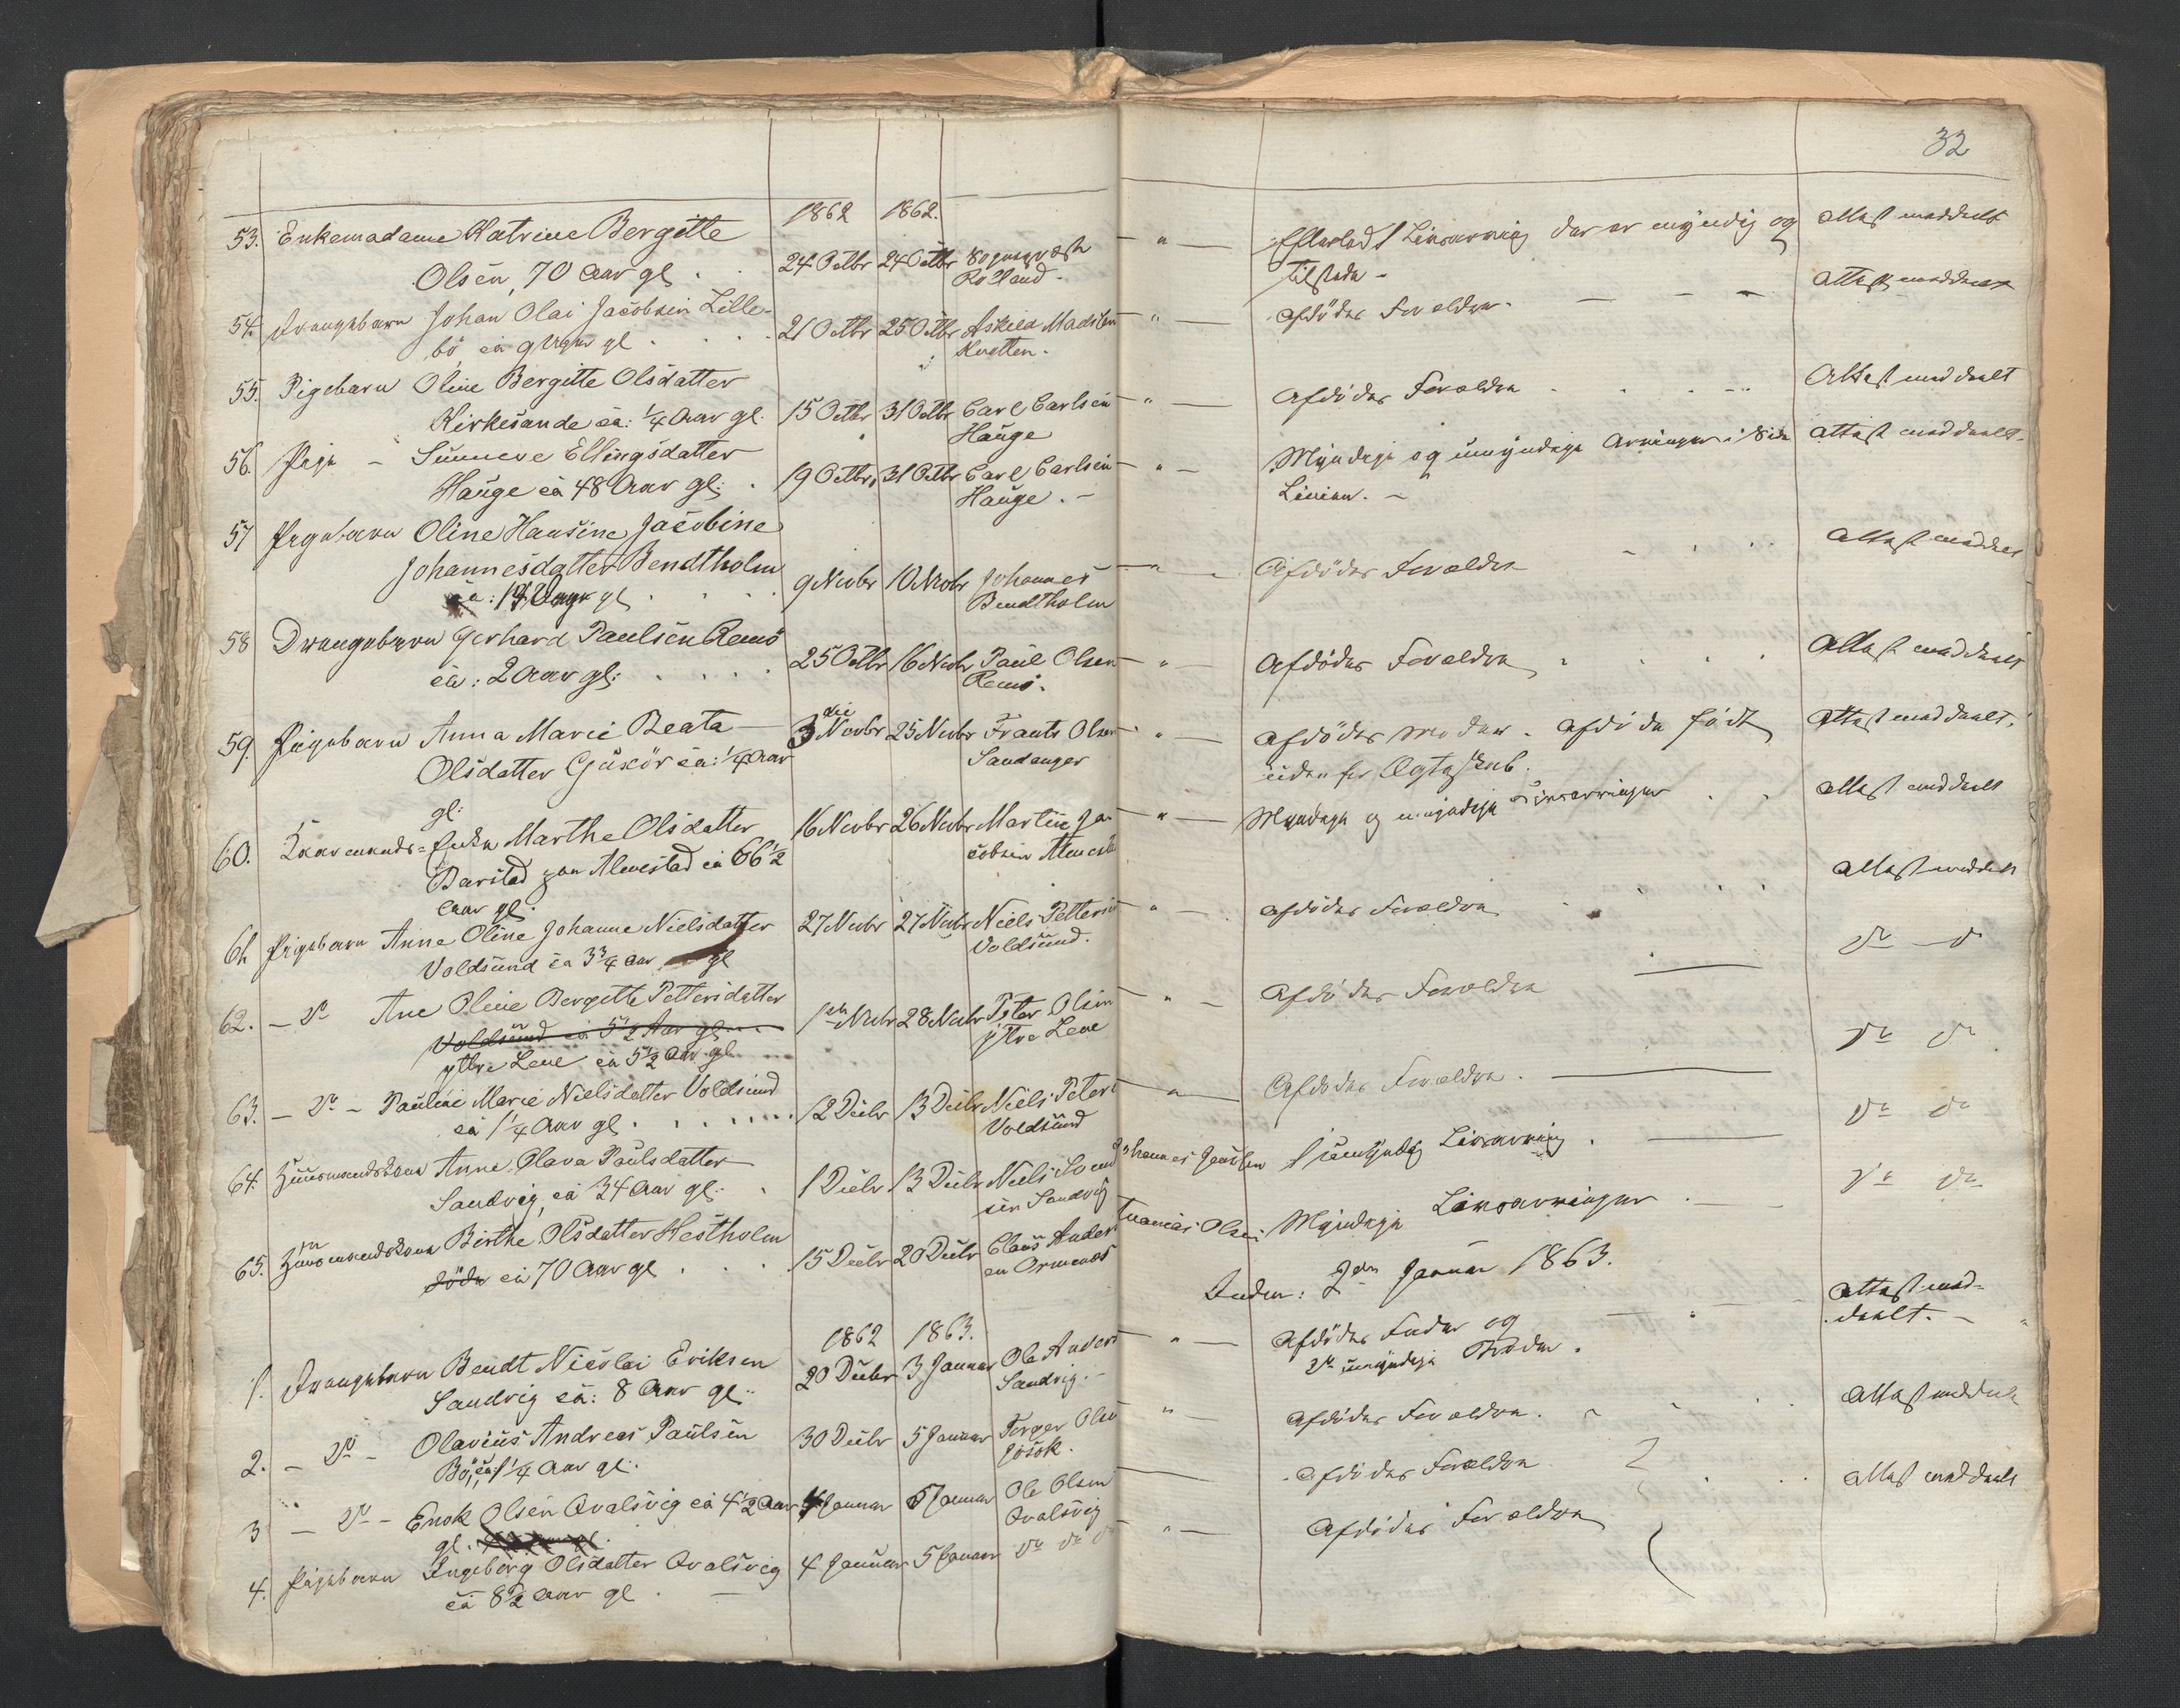 32
1862 1862.
53. Enkemadame Katrine Bergitte
Olsen, 70 Aar gl . . 24 Octbr 24 Octbr Rolland. — " — Efterladt Livsarving der er myndig og Attest meddelt
tilstede -
54. Drengebarn Johan Olai Jacobsen Lille-
bö, ca 9 Uger gl . . . . 21 Octbr 25 Octbr Askild Madssen — " — Afdödes Forældre. — — — Attest meddeelt
Kvatten.
55. Pigebarn Oline Bergitte Olsdatter
Kirkesande ca: 1/4 Aar gl. 15 Octbr 31 Octbr Carl Carlsen — " — Afdödes Forældre . . . Attest meddeelt
Hauge
56. Pige - Sunneve Ellingsdatter
Hauge ca 48 Aar gl: . 19 Octbr. 31 Octbr Carl Carlsen — " — Myndige og umyndige Arvinger i Side Attest meddeelt.
Hauge. - Linien. -
57 Pigebarn Oline Hansine Jacobine
Johannesdatter Bendtholm
ca: gl . . . . 9 Novbr 10 Novbr Johannes — " — Afdödes Forældre - . . . Attest meddeelt
Bendtholm
58 Drengebarn Gerhard Paulsen Remö
ca: 2 Aar gl: . . . . . 25 Octbr 16 Novbr Paul Olsen — " — Afdödes Forældre . . . . Attest meddeelt
Remö.
59. Pigebarn Anna Marie Beata — 3die Novbr 25 Novbr Frants Olsen — " — Afdödes Moder. Afdöde födt Attest meddeelt.
Olsdatter Gjuxör ca: 1/4 Aar Sandanger udenfor Ægteskab.
gl:
60. Kaarmands-Enke Marthe Olsdatter 16 Novbr 26 Novbr Martin Ja- — " — Myndige og umyndige Livsarvinger . . Attest meddeelt
Barstad paa Almestad ca 66 1/2 cobsen
Aar gl.
61. Pigebarn Anne Oline Johanne Nielsdatter 27 Novbr 27 Novbr Niels Pettersen " — Afdödes Forældre . . . Attest meddeelt
Voldsund ca 3 3/4 Aar gl Voldsund.
62. - Do Ane Oline Bergitte Pettersdatter 28 Novbr Peter Olsen — " — Afdödes Forældre — Do — Do
Voldsund ca 5 1/2 Aar gl ytre Leve
yttre Leve ca 5 1/2 Aar gl. . .
63. - Do - Pauline Marie Nielsdatter Voldsund
ca 1 1/4 Aar gl . . . . . . . 12 Decbr 13 Decbr Niels Peters — " — Afdödes Forældre. — Do Do
Voldsund
64. Huusmandskone Anne Olava Paulsdatter
Sandvig, ca 34 Aar gl: . 1 Decbr 13 Decbr Niels Johannes 1 umyndig Livsarving . — Do Do
sen Sandvig
65. Huusmandskone Birthe Olsdatter Hestholm
döde ca 70 Aar gl . . . 15 Decbr 20 Decbr Claus Anders Olsen Myndige Livsarvinger . — Do Do
en Ormenes
Inden: 2den Januar 1863.
1862 1863.
1. Drengebarn Bendt Nicolai Eriksen 20 Decbr 3 Januar Ole Anders — " — Afdödes Fader og Attest med-
Sandvig ca: 8 Aar gl: Sandvig. - 2de umyndige Brödre. deelt. - "
2. - Do - Olavius Andreas Paulsen 30 Decbr 5 Januar Torger Olsen " — Afdödes Forældre. - - . . Attest meddeelt
Bö, ca: 1 1/4 Aar gl: Jösok.
3 - Do - Enok Olsen Qvalsvig ca 4 1/2 Aar 4 Januar 5 Januar Ole Olsen — Afdödes Forældre . . Attest meddeelt
gl. Qvalsvig
4. Pigebarn Ingeborg Olsdatter Qvalsvig 4 Januar 5 Januar Do Do Do " — Afdödes Forældre
ca 8 1/2 Aar gl . —